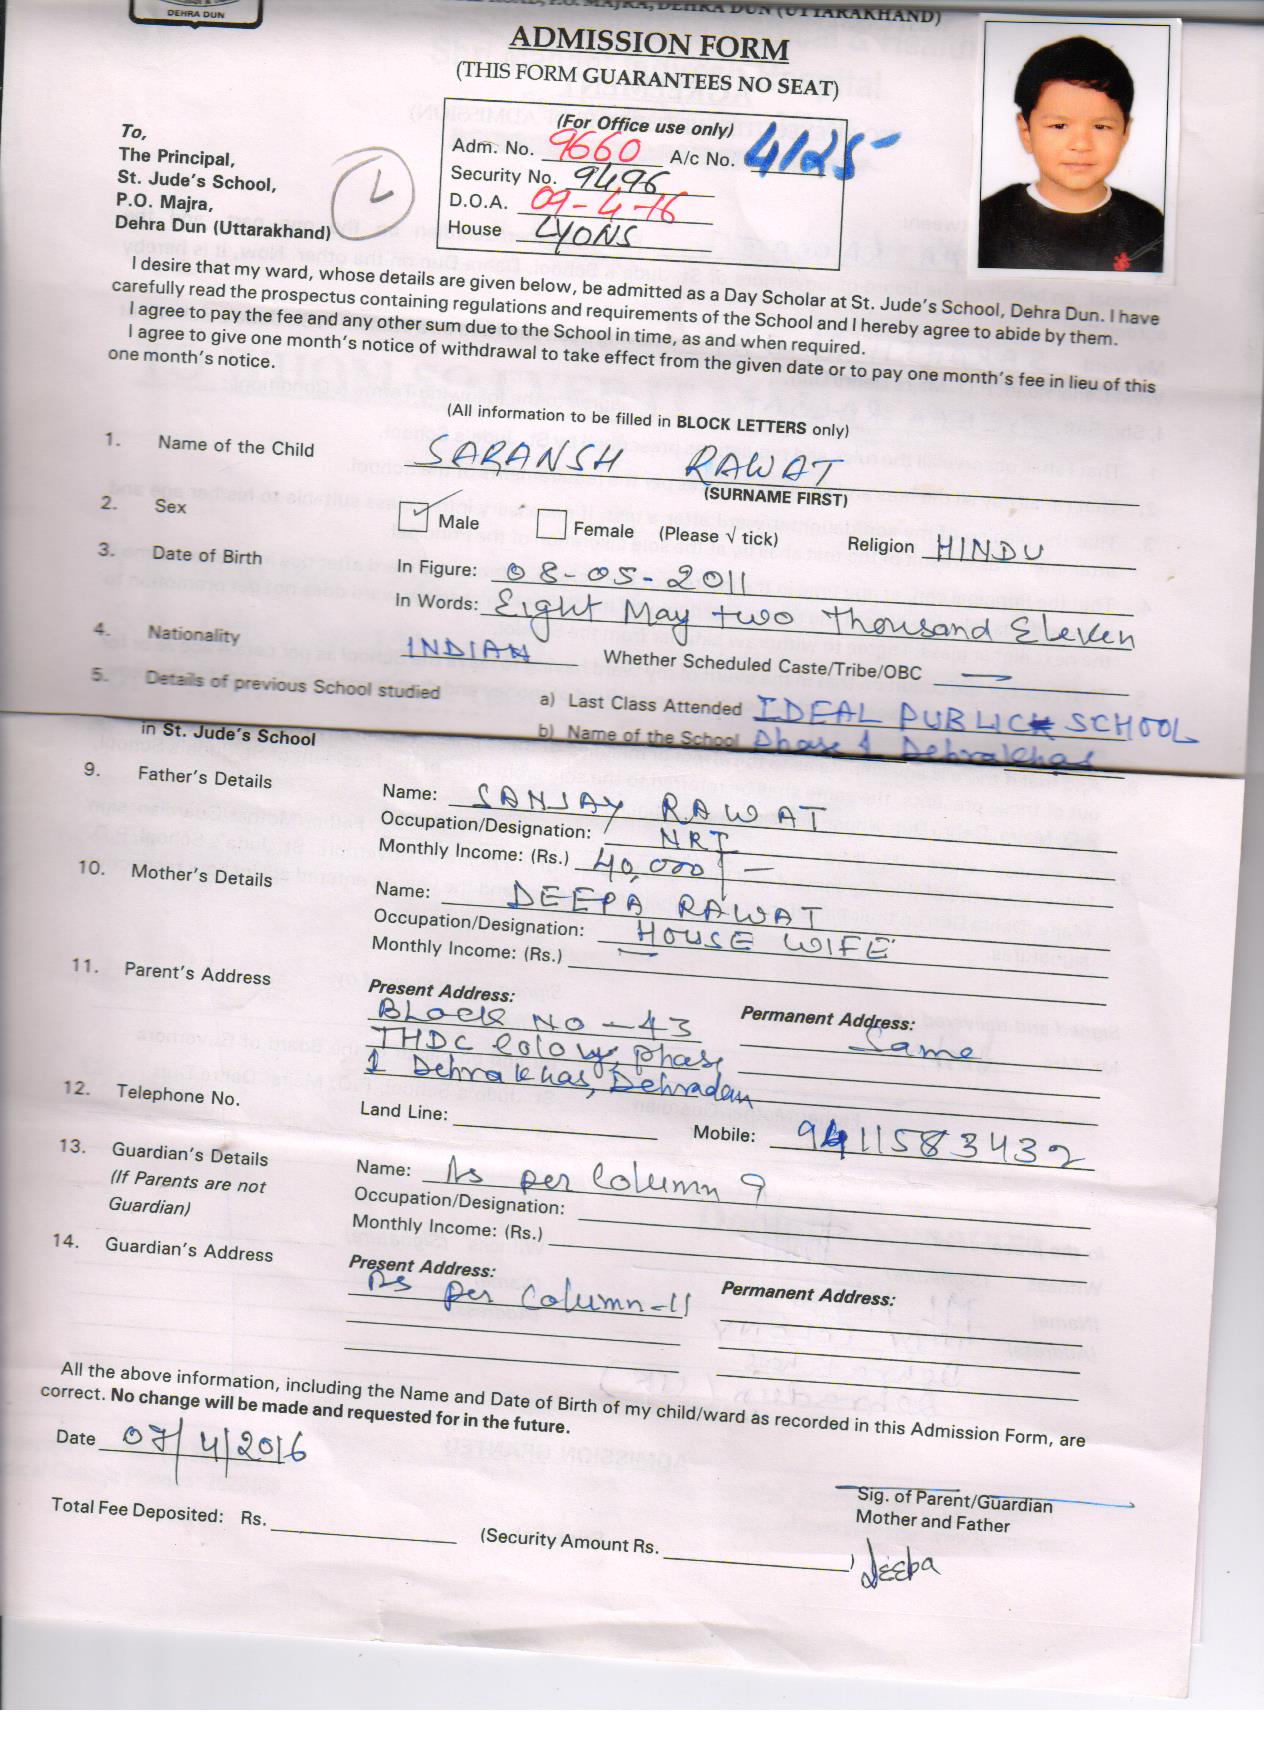 DEHRA DUN
ROAD, P.O. MAJRA, DEHRA DUN (UTTARAKHAND)
ADMISSION FORM
(THIS FORM GUARANTEES NO SEAT)
(For Office use only)
Adm. No. 9660 A/c No. 4125
Security No. 9496
D.O.A. 09-4-16
House LYONS
To,
The Principal,
St. Jude's School,
P.O. Majra,
Dehra Dun (Uttarakhand)
I desire that my ward, whose details are given below, be admitted as a Day Scholar at St. Jude's School, Dehra Dun. I have
carefully read the prospectus containing regulations and requirements of the School and I hereby agree to abide by them.
I agree to pay the fee and any other sum due to the School in time, as and when required.
I agree to give one month's notice of withdrawal to take effect from the given date or to pay one month's fee in lieu of this
one month's notice.
(All information to be filled in BLOCK LETTERS only)
1. Name of the Child SARANSH RAWAT
(SURNAME FIRST)
2. Sex Male Female (Please √ tick) Religion HINDU
3. Date of Birth In Figure: 08-05-2011
In Words: Eight May two Thousand Eleven
4. Nationality INDIAN Whether Scheduled Caste/Tribe/OBC —
5. Details of previous School studied a) Last Class Attended IDEAL PUBLIC SCHOOL
in St. Jude's School b) Name of the School Phase 1 Dehrakhas
9. Father's Details Name: SANJAY RAWAT
Occupation/Designation: NRI
Monthly Income: (Rs.) 40,000/—
10. Mother's Details Name: DEEPA RAWAT
Occupation/Designation: HOUSE WIFE
Monthly Income: (Rs.) —
11. Parent's Address Present Address: Permanent Address:
BLOCK NO-43 Same
THDC Colony, phase
1 Dehrakhas, Dehradun
12. Telephone No. Land Line: Mobile: 9411583432
13. Guardian's Details Name: As per Column 9
(If Parents are not Occupation/Designation:
Guardian) Monthly Income: (Rs.)
14. Guardian's Address Present Address: Permanent Address:
As per Column-11
All the above information, including the Name and Date of Birth of my child/ward as recorded in this Admission Form, are
correct. No change will be made and requested for in the future.
Date 07/4/2016
Sig. of Parent/Guardian
Mother and Father
Total Fee Deposited: Rs. (Security Amount Rs. )
Deepa